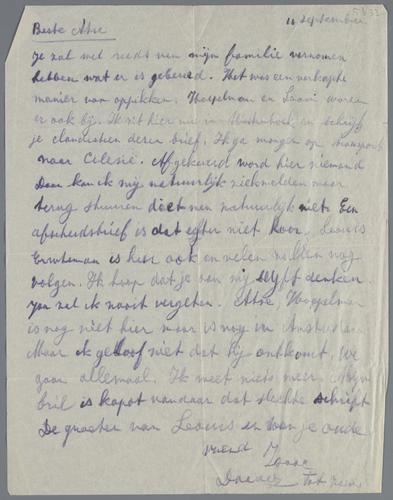 11 september
Beste Atie
Je zal wel reeds van mijn familie vernomen
hebben wat er is gebeurd. Het was een verkapte
manier van oppikken. Hoepelman en waren
er ook bij. Ik zit hier nu in en schrijf
je clandestien deze brief. Ik ga morgen op transport
naar Silesië. Afgekeurd word hier niemand
Daar kan ik mij natuurlijk ziekmelden maar
terug sturen doet men natuurlijk niet. Een
afscheidsbrief is dat echter niet hoor. Leowis
is hier ook en velen zullen nog
volgen. Ik hoop dat je aan mij blijft denken.
Jou zal ik nooit vergeten. Hoepelman
is nog niet hier maar is nog in Amsterdam
Maar ik geloof niet dat hij ontkomt. We
gaan allemaal. Ik weet niets meer. Mijn
bril is kapot vandaar dat slechte schrift
De groeten van Leowis en van je oude
vriend
tot ziens